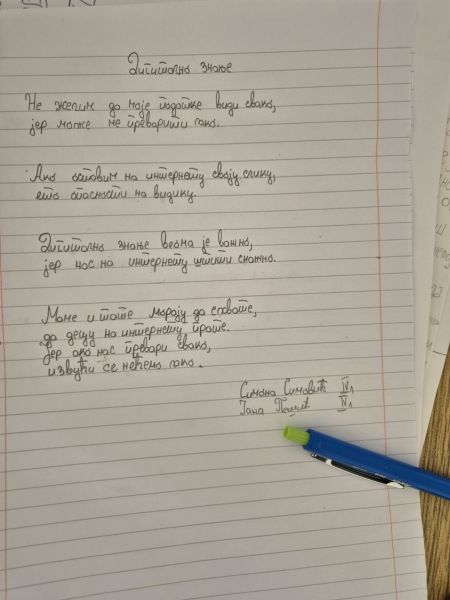 Дигитално знање
Не желим да моје податке види свако,
јер може ме преварити лако.
Ако оставим на интернету своју слику,
ето опасности на видику.
Дигитално знање веома је важно,
јер нас на интернету штити снажно.
Маме и тате морају да схвате,
да децу на интернету прате.
Јер ако нас превари свако,
извући се нећемо лако.
Симона Симовић IV₁
Јана IV₁